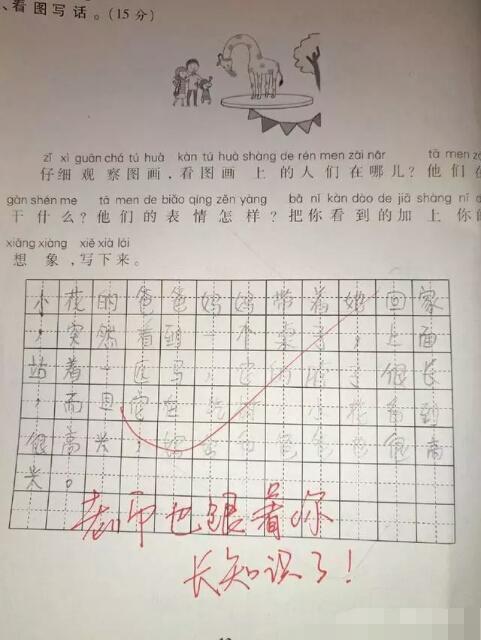 、看图写话。(15分)
zǐ xì guān chá tú huà kàn tú huà shàng de rén men zài nǎr tā men z
仔细观察图画，看图画上的人们在哪儿？他们在
gàn shén me tā men de biǎo qíng zěn yàng bǎ nǐ kàn dào de jiā shàng nǐ d
干什么？他们的表情怎样？把你看到的加上你的
xiǎng xiàng xiě xià lái
想象，写下来。
小花的爸爸妈妈带着她回家
，突然看到一个桌子，上面
站着一匹马，它的脖子很长
，而且它在吃 小花看到
很高兴，妈妈和爸爸也很高
兴。
老师也跟着你
长知识了！